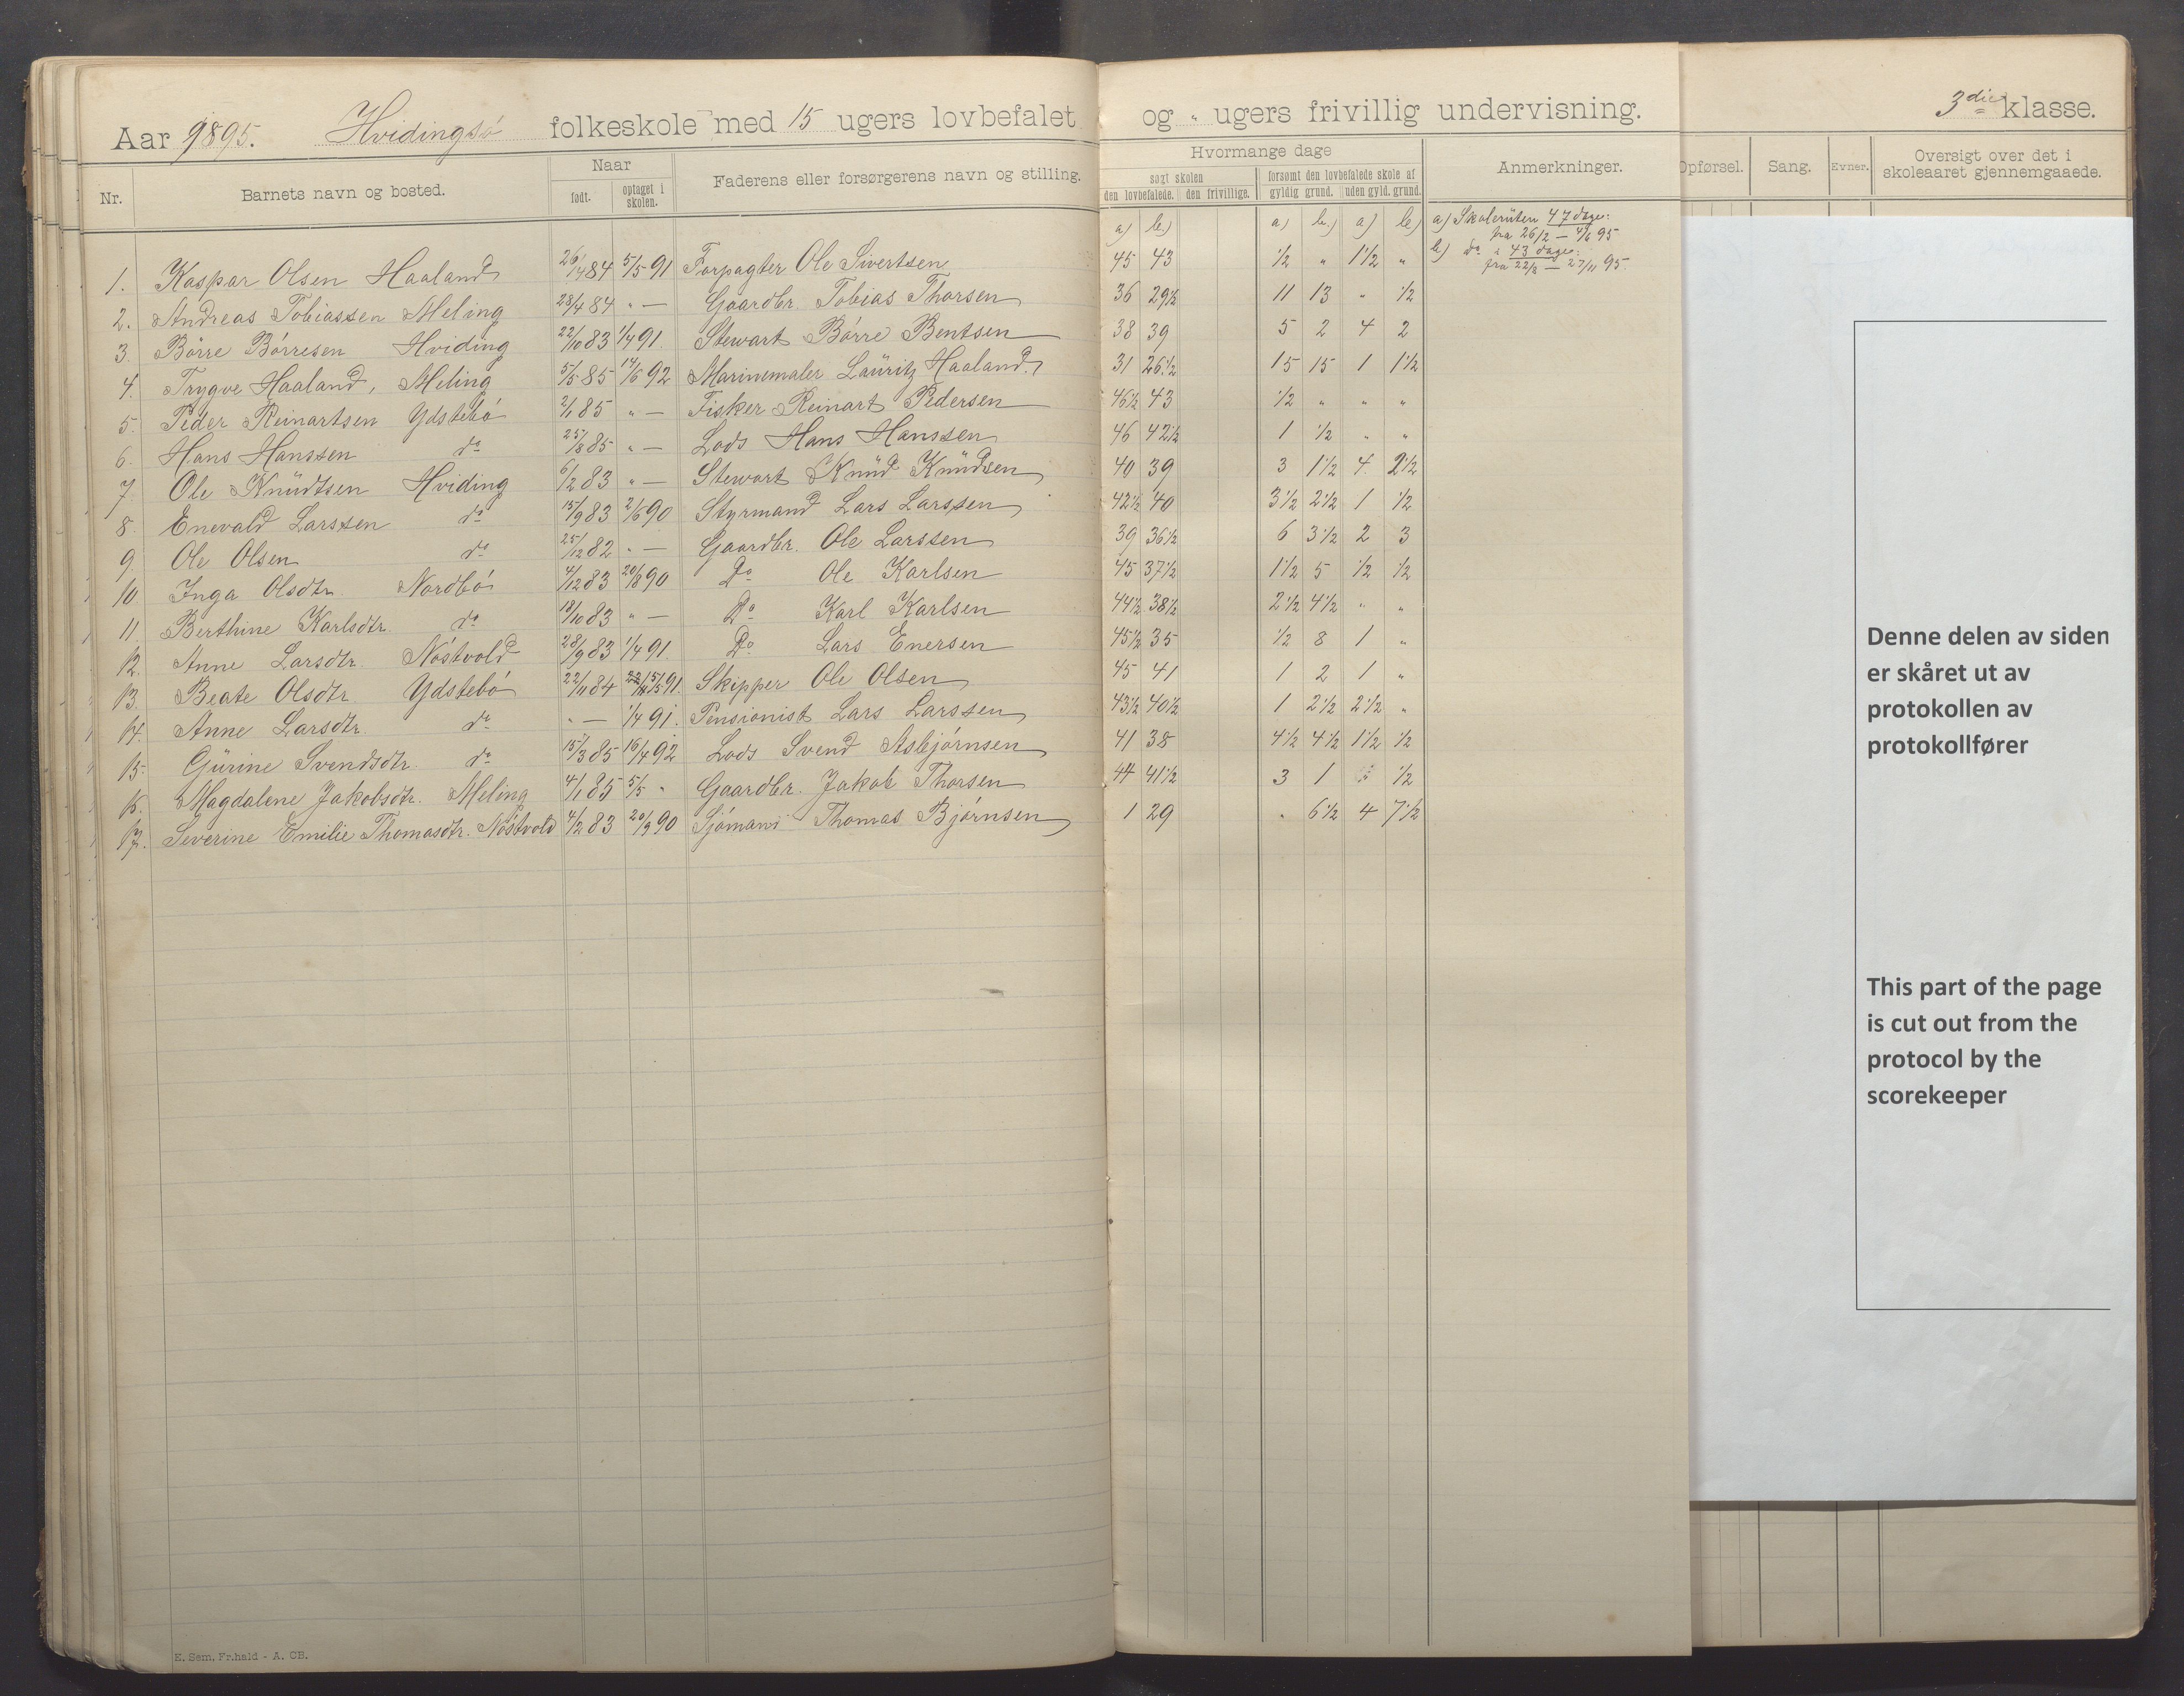 Aar 1895. Hvidingsö folkeskole med 15 ugers lovbefalet og " ugers frivillig undervisning. 3die klasse.
Nr. Barnets navn og bosted. Naar født. optaget i skolen. Faderens eller forsørgerens navn og stilling. Hvormange dage søgt skolen den lovbefalede. den frivillige. forsømt den lovbefalede skole af gyldig grund. uden gyld. grund. Anmerkninger. Opførsel. Sang. Evner. Oversigt over det i skoleaaret gjennemgaaede.
a) b.) a) b.) a) b) a) Skoleruten 47 dage:
fra 26/2 – 4/6 95
b) do " 43 dage:
fra 22/8 – 27/11 95.
1. Kaspar Olsen Haaland 26/4 84 5/5 91 Forpagter Ole Sivertsen 45 43 1/2 " 1 1/2 "
2. Andreas Tobiassen Meling 28/4 84 " — Gaardbr. Tobias Thorsen 36 29 1/2 11 13 " 1/2
3. Börre Börresen Hviding 22/10 83 1/4 91. Stewart Börre Bentsen 38 39 5 2 4 2
4. Trygve Haaland, Meling 5/5 85 14/6 92 Marinemaler Lauritz Haaland. 31 26 1/2 15 15 1 1 1/2
5. Peder Reinartsen Ydstebö 2/1 85 " — Fisker Reinart Pedersen 46 1/2 43 1/2 " " "
6. Hans Hanssen do 25/8 85 " — Lods Hans Hanssen 46 42 1/2 1 1/2 " "
7. Ole Knudtsen Hviding 6/2 83 " — Stewart Knud Knudsen 40 39 3 1 1/2 4 2 1/2
8. Enevald Larssen do 15/9 83 2/6 90 Styrmand Lars Larssen 42 1/2 40 3 1/2 2 1/2 1 1/2
9. Ole Olsen do 25/12 82 " — Gaardbr. Ole Larssen 39 36 1/2 6 3 1/2 2 3
10 Inga Olsdtr. Nordbö 4/12 83 20/8 90 Do Ole Karlsen 45 37 1/2 1 1/2 5 1/2 1/2
11. Berthine Karlsdtr. do 18/10 83 " — Do Karl Karlsen 44 1/2 38 1/2 2 1/2 4 1/2 " "
12. Anne Larsdtr. Nöstvold 28/9 83 1/4 91. Do Lars Enersen 45 1/2 35 1/2 8 1 "
13. Beate Olsdtr. Ydstebö 22/11 84 5/5 91. Skipper Ole Olsen 45 41 1 2 1 "
14. Anne Larsdtr. do " — 1/4 91. Pensionist Lars Larssen 43 1/2 40 1/2 1 2 1/2 2 1/2 "
15. Gurine Svendsdtr. do 15/3 85 16/4 92 Lods Svend Asbjörnsen 41 38 4 1/2 4 1/2 1 1/2 1/2
16. Magdalene Jakobsdtr. Meling 4/1 85 5/5 " Gaardbr. Jakob Thorsen 44 41 1/2 3 1 " 1/2
17. Severine Emilie Thomasdtr. Nöstvold 4/2 83 20/9 90 Sjömand Thomas Bjørnsen 1 29 " 6 1/2 4 7 1/2
Denne delen av siden
er skåret ut av
protokollen av
protokollfører
This part of the page
is cut out from the
protocol by the
scorekeeper
E. Sem, Fr.hald - A. CB.